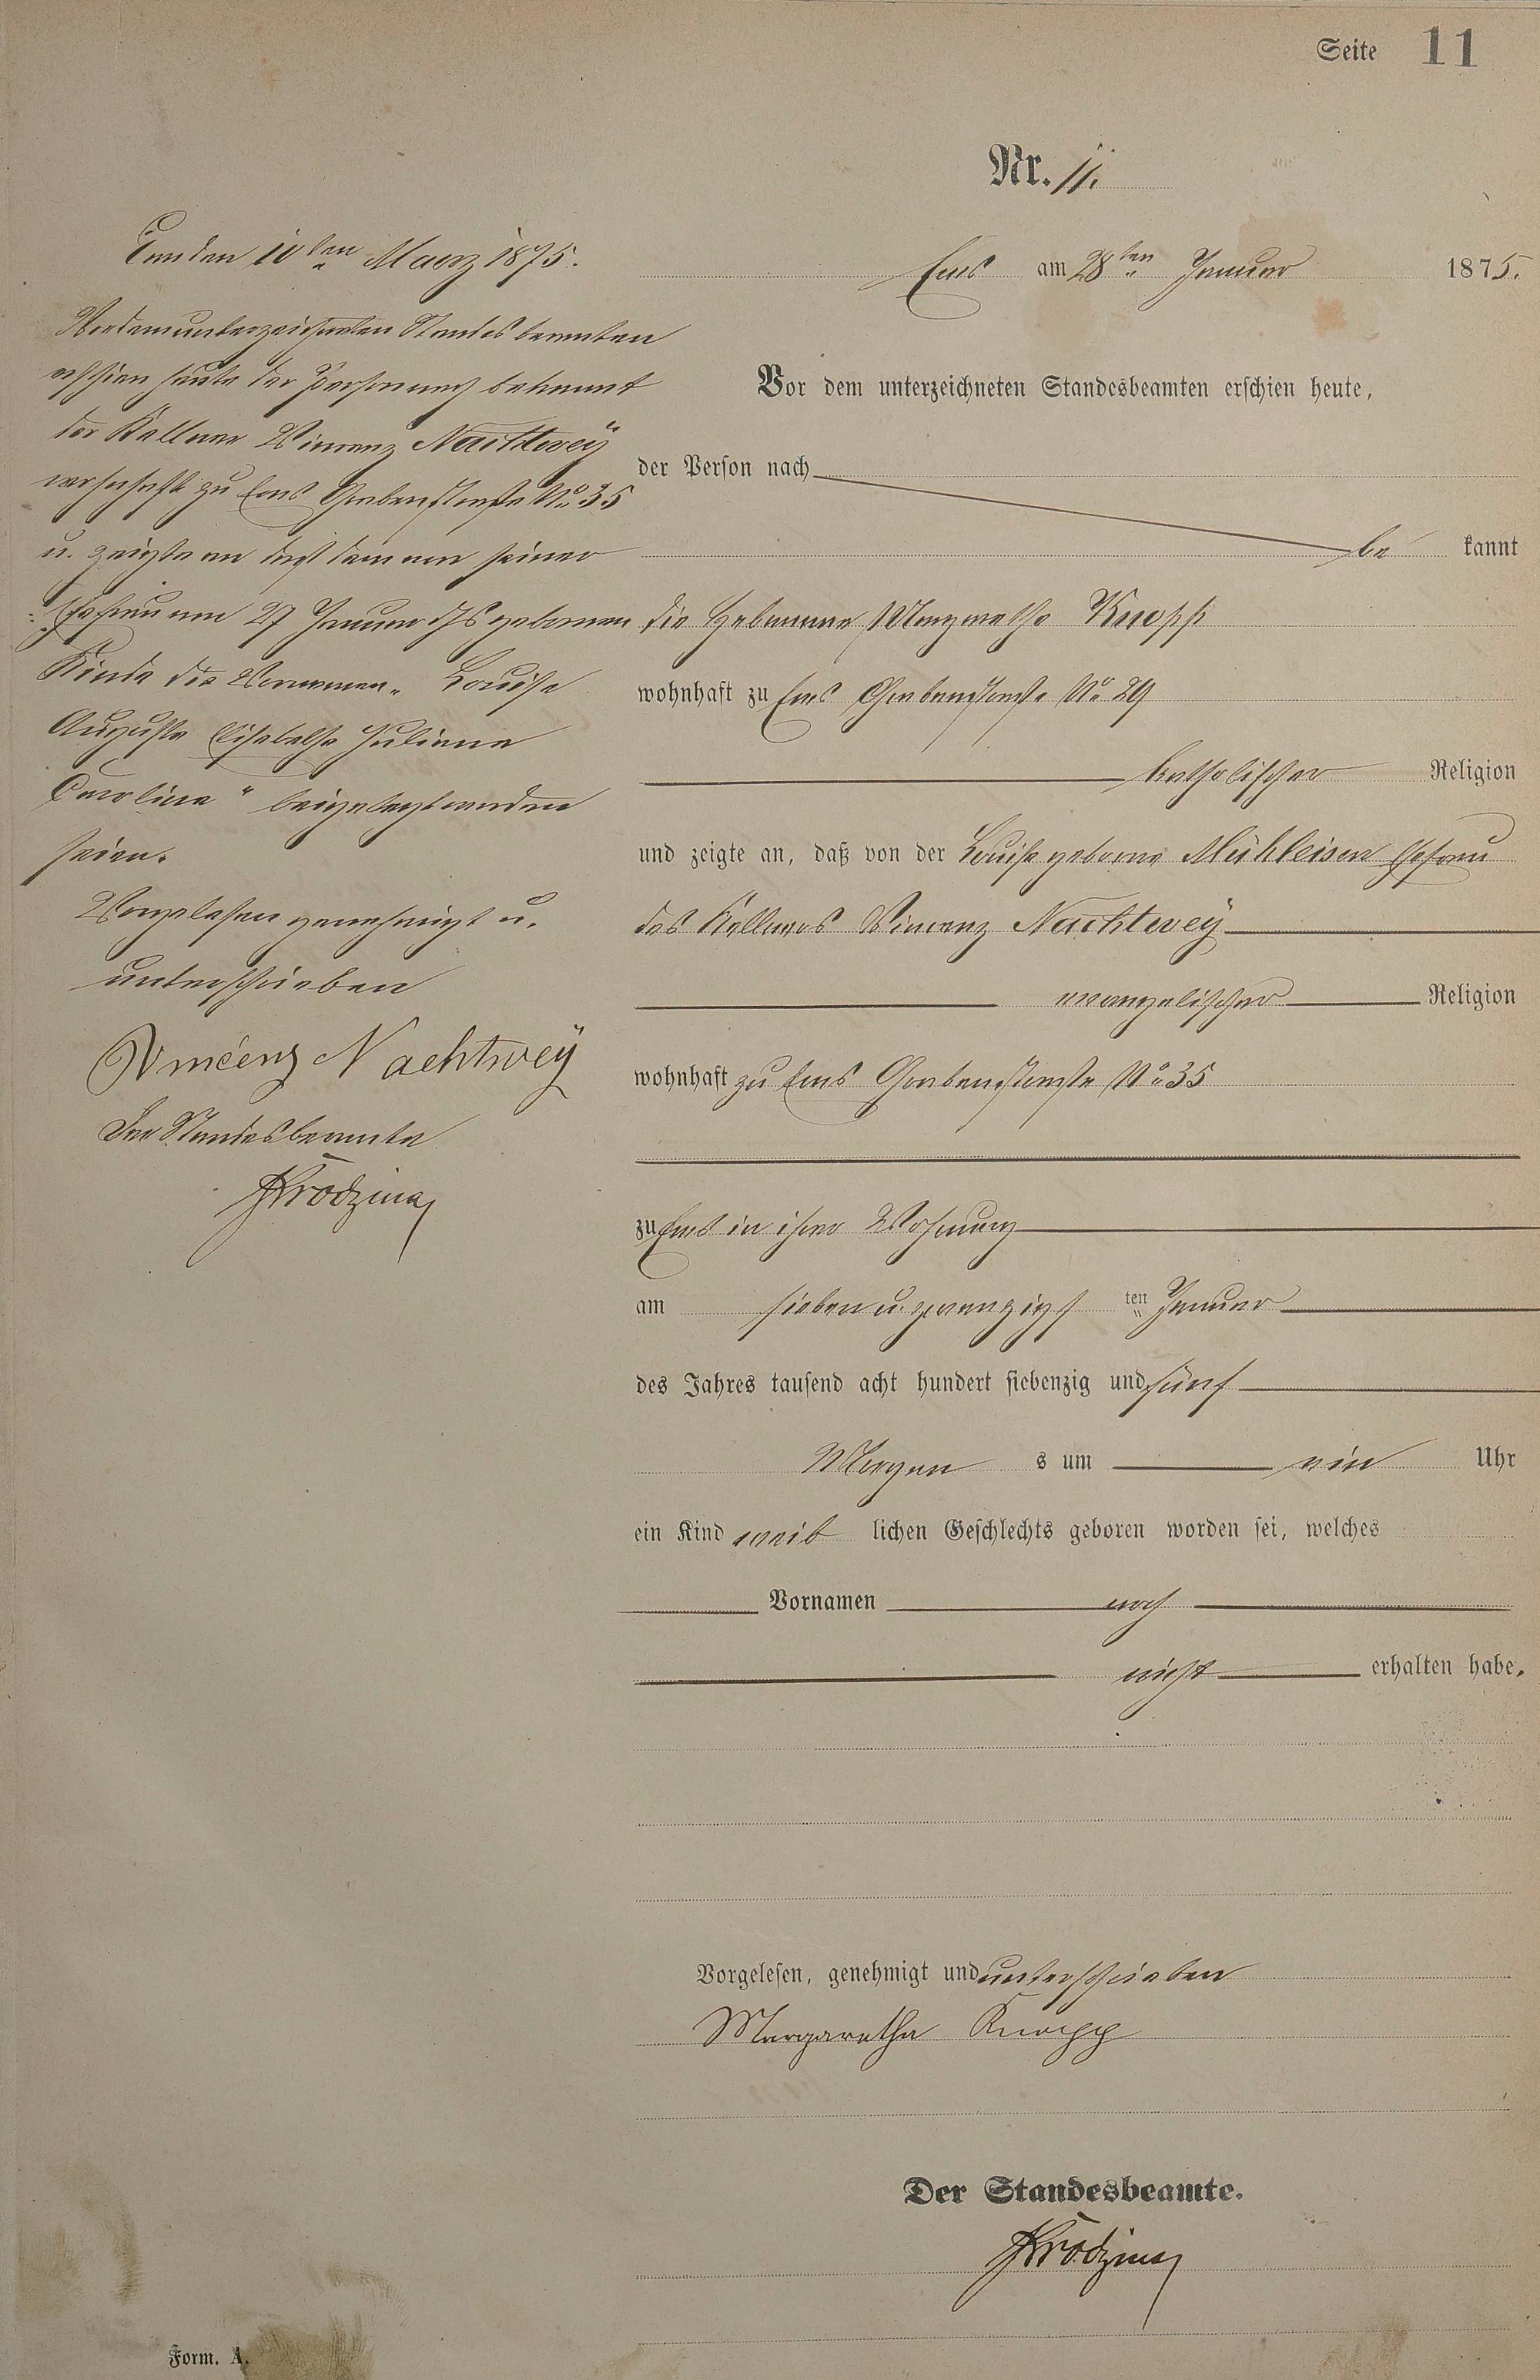 Seite 11
Nr. 11.
Ems den 10ten Maerz 1875.
Vor dem unterzeichneten Standesbeamten
erschien heute der Person nach bekannt
der Kellner Vincenz Nachtweÿ
wohnhaft zu Ems Grabenstraße No 35
u. zeigte an daß dem von seiner
Ehefrau am 27 Januar ds geborenen
Kinde die Vornamen „Louise
Auguste Elisabetha Juliane
Caroline" beigelegt worden
seien.
Vorgelesen genehmigt u.
unterschrieben
Vincenz Nachtweÿ
Der Standesbeamte
Ems am 28ten Januar 1875.
Vor dem unterzeichneten Standesbeamten erschien heute,
der Person nach
be kannt
die Hebamme Margaretha Knopp
wohnhaft zu Ems Grabenstraße No 29
katholischer Religion
und zeigte an, daß von der Louise geborne Mühleisen Ehefrau
des Kellners Vincenz Nachtweÿ
evangelischer Religion
wohnhaft zu Ems Grabenstraße No 35
zu Ems in ihrer Wohnung
am sieben u. zwanzigs ten Januar
des Jahres tausend acht hundert siebenzig und fünf
Morgen s um ein Uhr
ein Kind weib lichen Geschlechts geboren worden sei, welches
Vornamen noch
nicht erhalten habe.
Vorgelesen, genehmigt und unterschrieben
Margaretha Knopp
Der Standesbeamte.
Form. A.